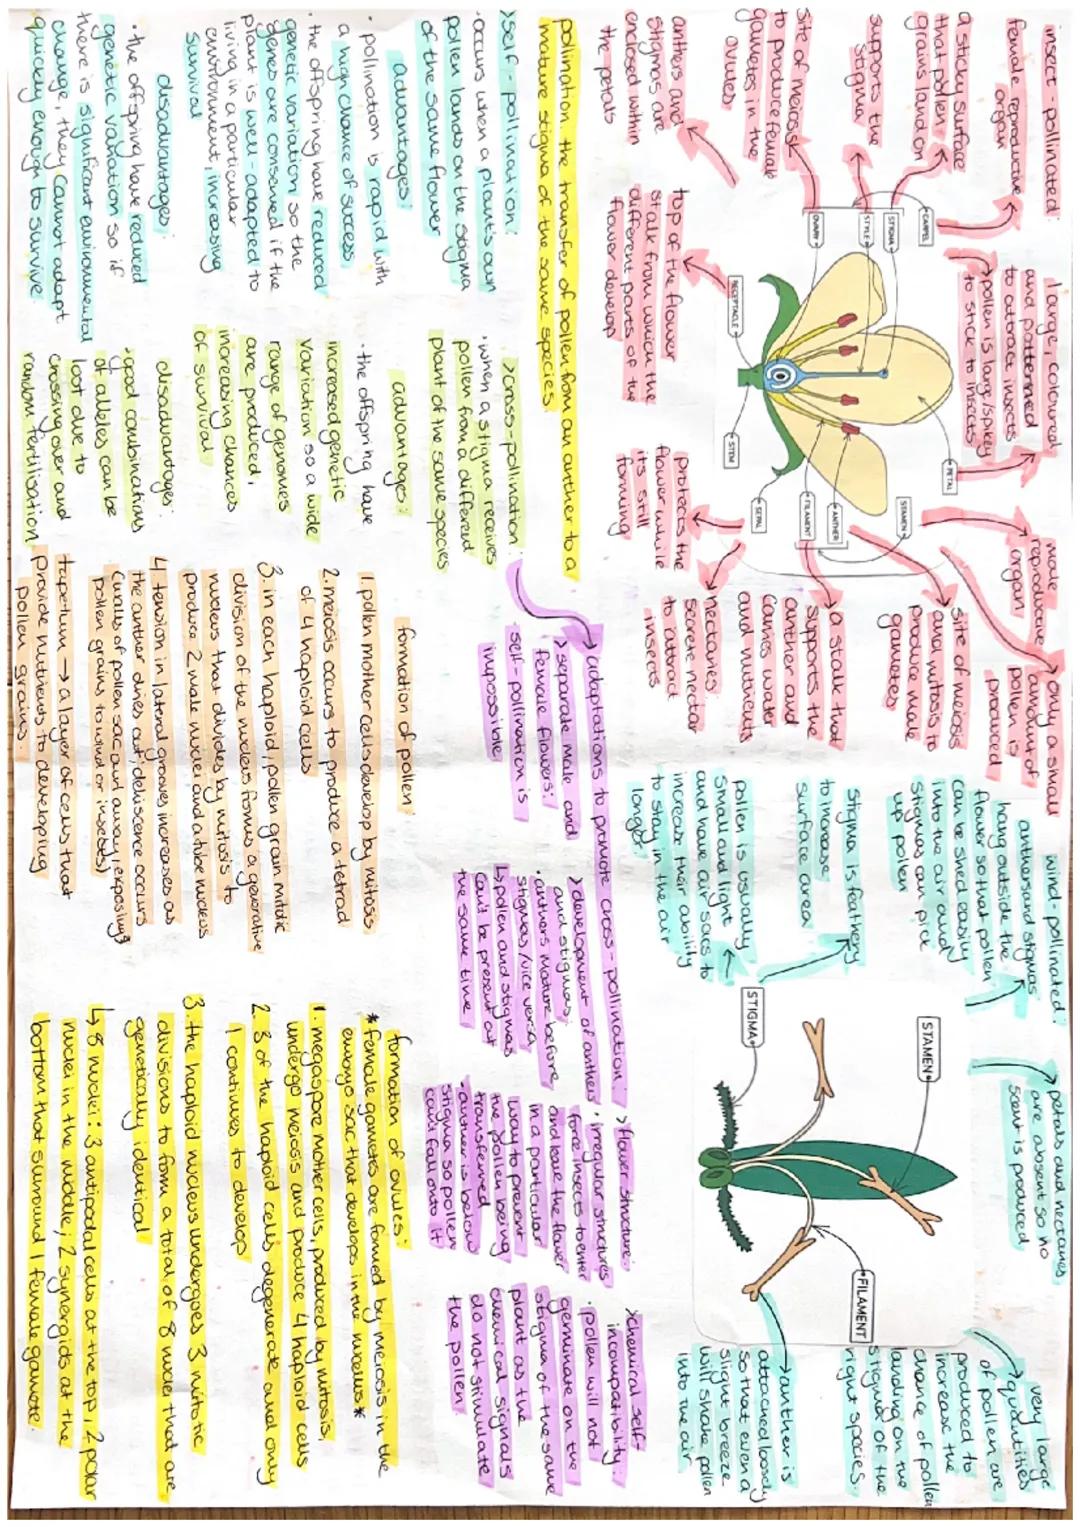 insect-pollinated:
female reproductive
organ
a sticky surface
that pollen
grains land on
supports the
stigma
site of meiosis
to produce female
gametes in the
ovules
anthers and
stigmas are
enclosed within
the petals
large, coloured
and patterned
to attract insects
pollen is large/spikey
to stick to insects
CARPEL
STIGMA
STYLE
OVARY
RECEPTACLE
STEM
SEPAL
FILAMENT
ANTHER
STAMEN
PETAL
top of the flower
stalk from which the
different parts of the
flower develop
protects the
flower while
it's still
forming
male
reproductive
organ
only a small
amount of
pollen is
produced
site of meiosis
and mitosis to
produce male
gametes
a stalk that
supports the
anther and
carries water
and nutrients
nectaries
secrete nectar
to attract
insects
wind-pollinated:
anthers and stigmas
hang outside the
flower so that pollen
can be shed easily
into the air and
stigmas can pick
up pollen
stigma is feathery
to increase
surface area
pollen is usually
small and light
and have air sacs to
increase their ability
to stay in the air
longer
STIGMA
STAMEN
FILAMENT
petals and nectaries
are absent so no
scent is produced
very large
quantities
of pollen are
produced to
increase the
chance of pollen
landing on the
stigma of the
right species
anther is
attached loosely
so that even a
slight breeze
will shake pollen
into the air
pollination: the transfer of pollen from an anther to a
mature stigma of the same species
>self-pollination:
• occurs when a plant's own
pollen lands on the stigma
of the same flower
advantages:
• pollination is rapid with
a high chance of success
• the offspring have reduced
genetic variation so the
genes are conserved if the
plant is well-adapted to
living in a particular
environment, increasing
survival
disadvantages:
• the offspring have reduced
genetic variation so if
there is significant environmental
change, they cannot adapt
quickly enough to survive
>cross-pollination:
• when a stigma receives
pollen from a different
plant of the same species
advantages:
• the offspring have
increased genetic
variation so a wide
range of genomes
are produced,
increasing chances
of survival
disadvantages:
• good combinations
of alleles can be
lost due to
crossing over and
random fertilisation
adaptations to promote cross-pollination:
>separate male and
female flowers:
self-pollination is
impossible
>development of anthers
and stigmas:
• anthers mature before
stigmas/vice versa
↳ pollen and stigmas
can't be present at
the same time
>flower structure:
• irregular structures
force insects to enter
and leave the flower
in a particular
way to prevent
the pollen being
transferred
• anther is below
stigma so pollen
can't fall onto it
>chemical self-
incompatibility:
• pollen will not
germinate on the
stigma of the same
plant as the
chemical signals
do not stimulate
the pollen
formation of pollen:
1. pollen mother cells develop by mitosis
2. meiosis occurs to produce a tetrad
of 4 haploid cells
3. in each haploid, pollen grain mitotic
division of the nucleus forms a generative
nucleus that divides by mitosis to
produce 2 male nuclei and a tube nucleus
4. tension in lateral grooves increases as
the anther dries out; dehiscence occurs
(walls of pollen sac curl away, exposing
pollen grains to wind or insects)
tapetum → a layer of cells that
provide nutrients to developing
pollen grains.
formation of ovules:
*female gametes are formed by meiosis in the
embryo sac that develops in the nucellus*
1. megaspore mother cells, produced by mitosis,
undergo meiosis and produce 4 haploid cells
2. 3 of the haploid cells degenerate and only
1 continues to develop
3. the haploid nucleus undergoes 3 mitotic
divisions to form a total of 8 nuclei that are
genetically identical
↳ 8 nuclei: 3 antipodal cells at the top, 2 polar
nuclei in the middle, 2 synergids at the
bottom that surround 1 female gamete